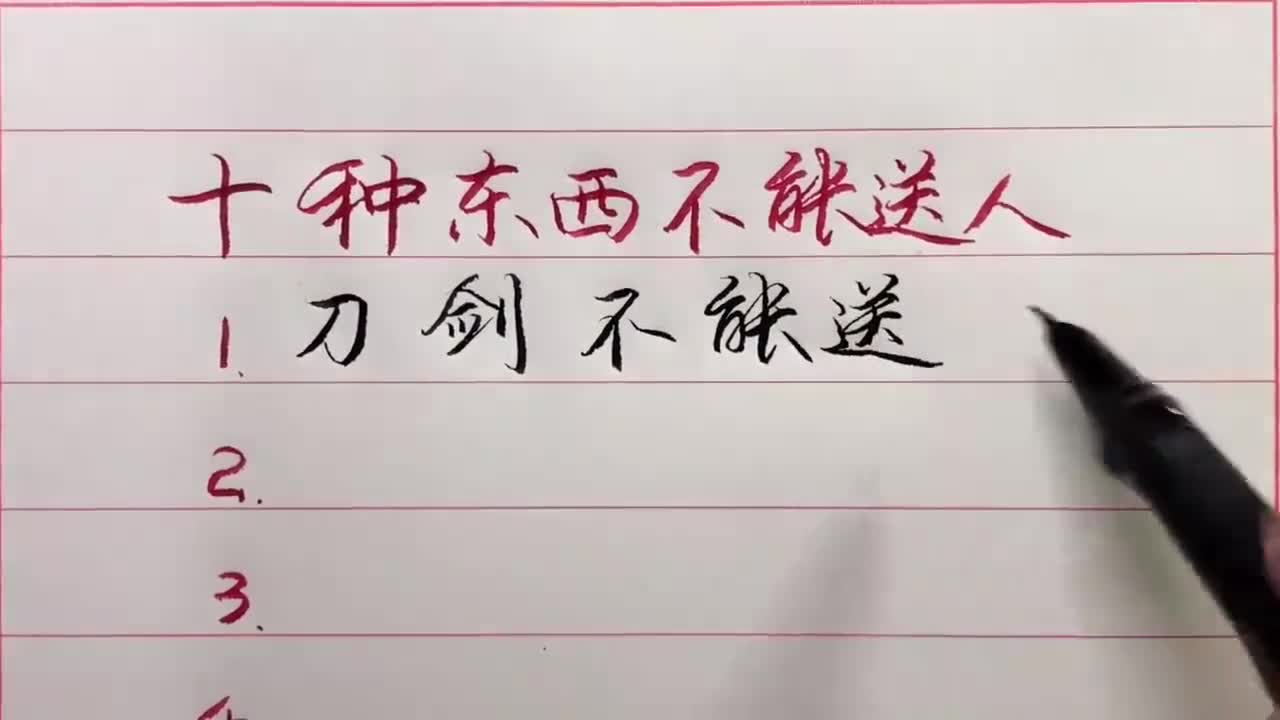 十种东西不能送人
1、刀剑不能送
2、
3、